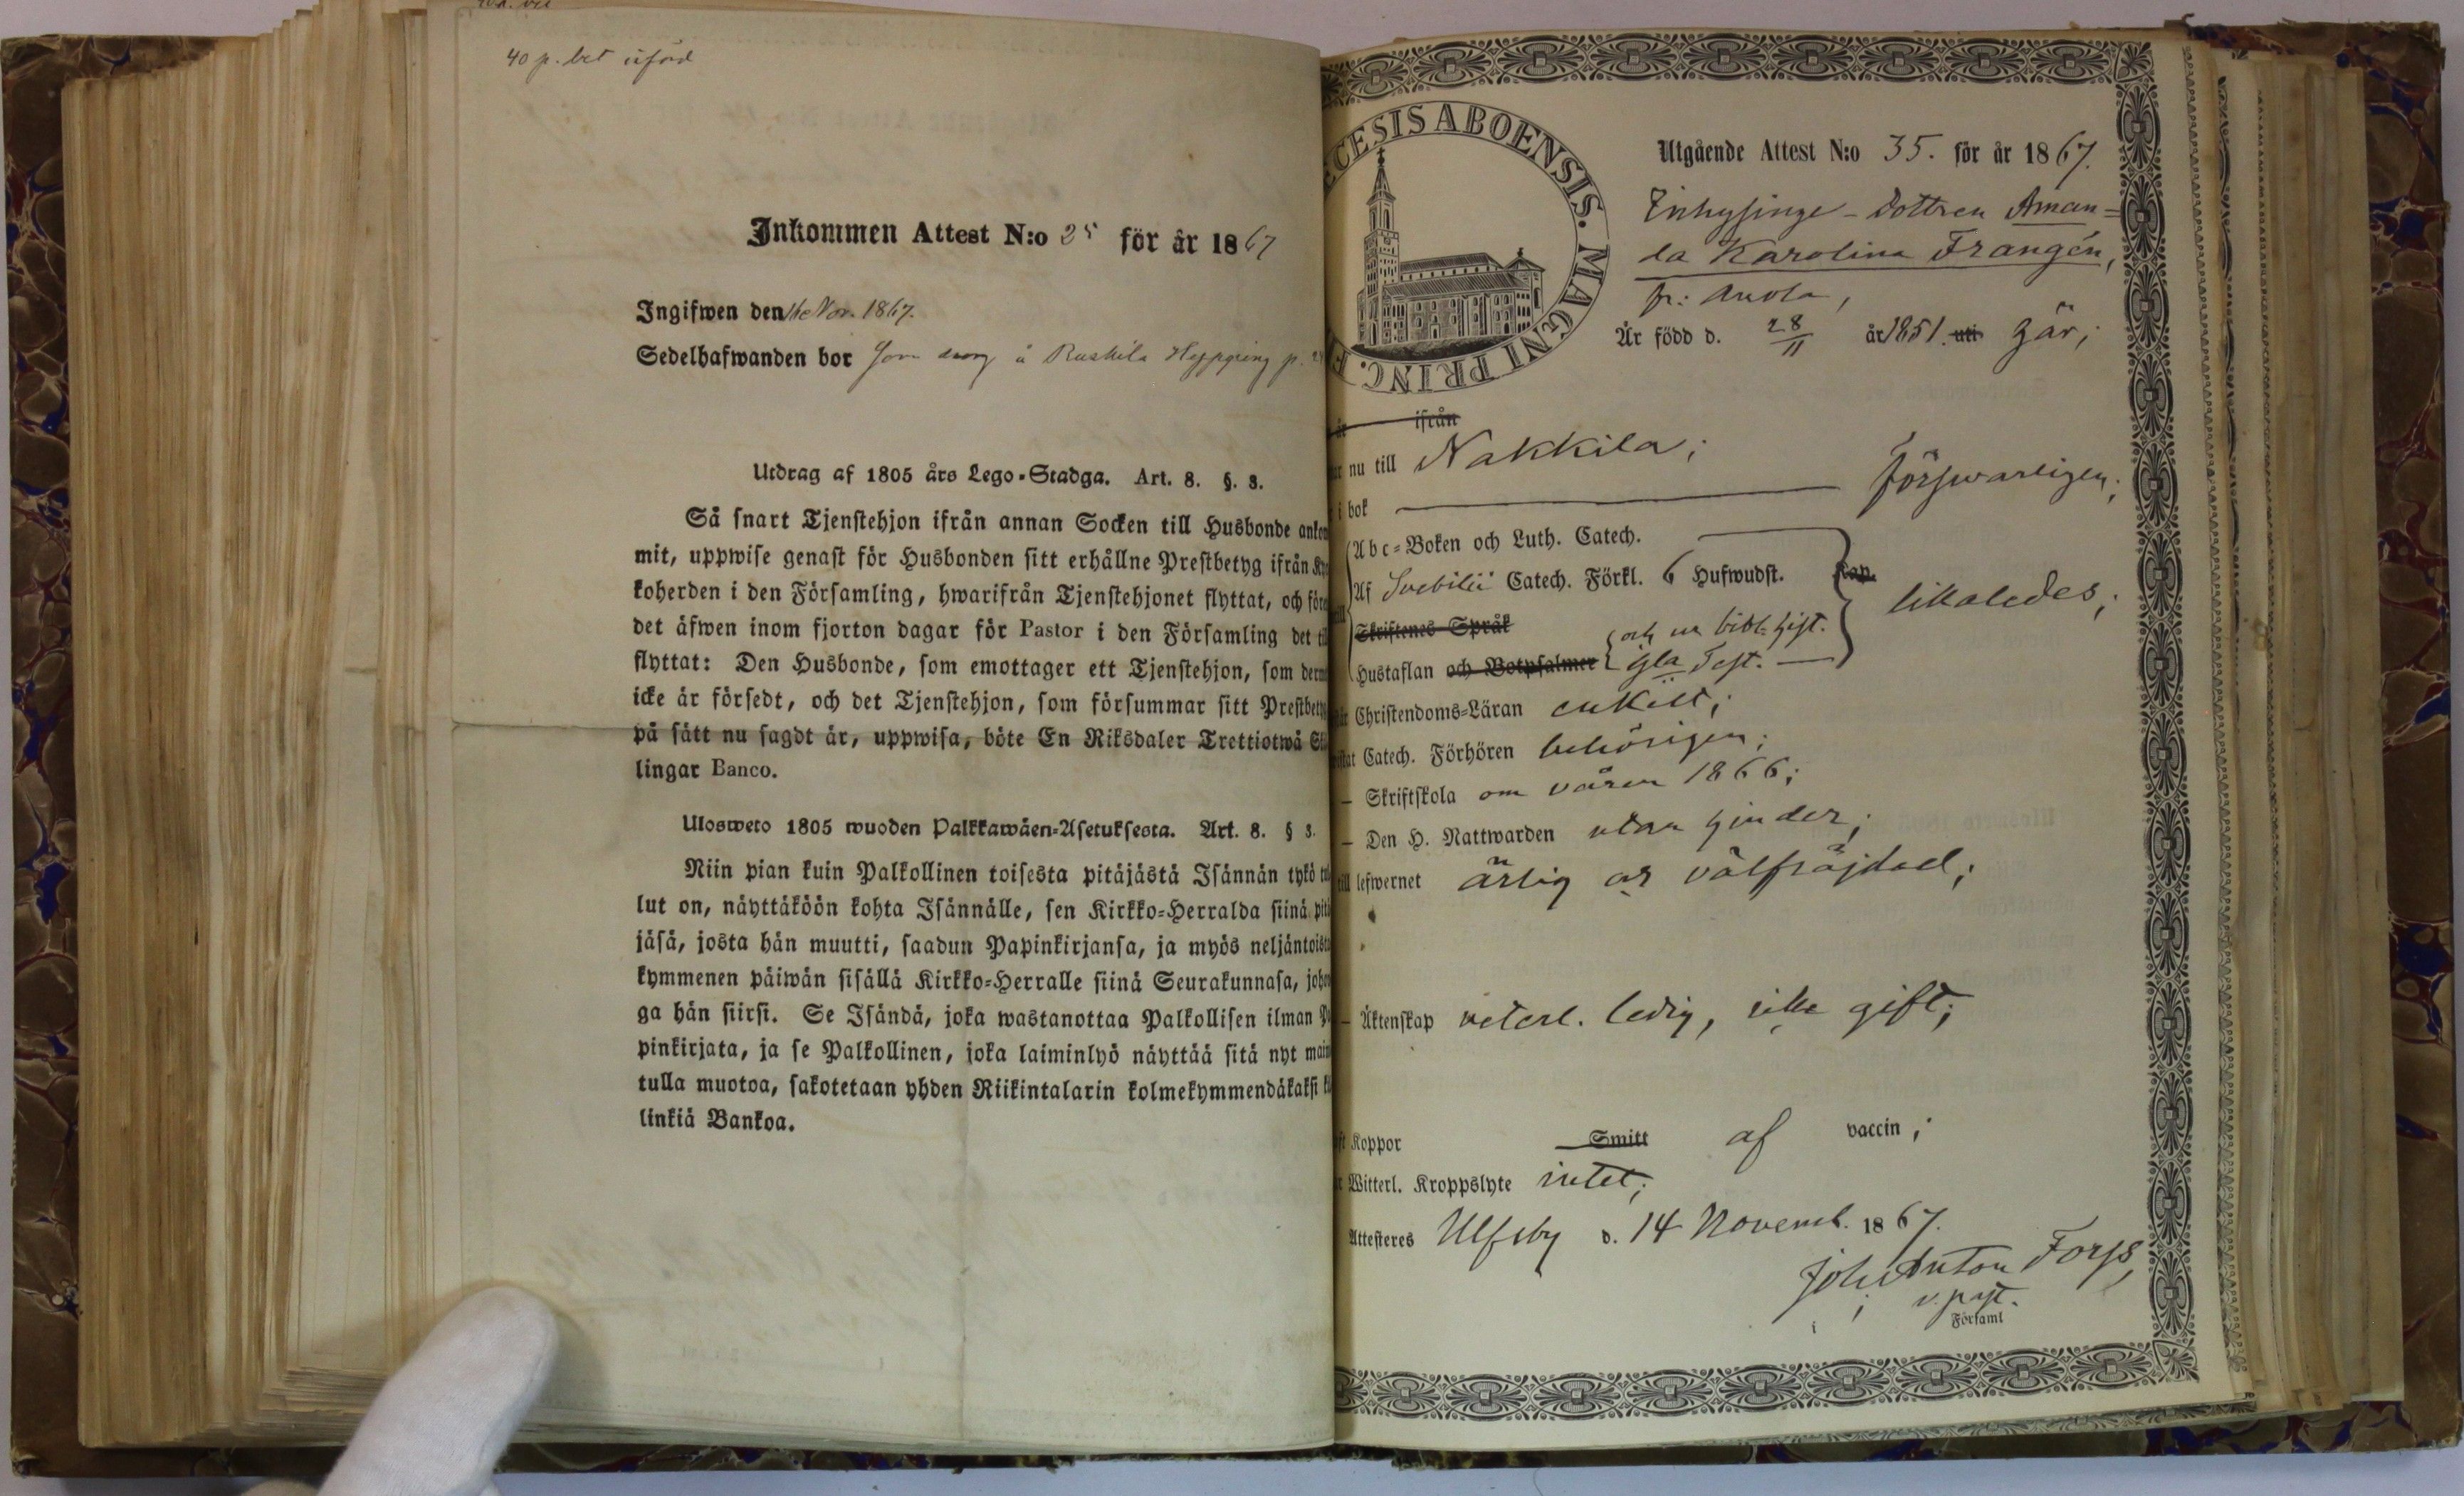 40 p.
Inkommen Attest N:o 25 för år 1867
Ingifwen den 16 Nov. 1867.
Sedelhafwanden bor å
Utdrag af 1805 års Lego-Stadga. Art. 8. §. 3.
Så snart Tjenstehjon ifrån annan Socken till Husbonde ankom
mit, uppwise genast för Husbonden sitt erhållne Prestbetyg ifrån Ky
koherden i den Församling, hwarifrån Tjenstehjonet flyttat, och före
det äfwen inom fjorton dagar för Pastor i den Församling det ti
flyttat: Den Husbonde, som emottager ett Tjenstehjon, som derm
icke är försedt, och det Tjenstehjon, som försummar sitt Prestbety
på sätt nu sagdt är, uppwisa, böte En Riksdaler Trettiotwå S
lingar Banco.
Ulosweto 1805 wuoden Palkkawäen-Asetuksesta. Art. 8. § 3.
Niin pian kuin Palkollinen toisesta pitäjästä Isännän tykö tul
lut on, näyttäköön kohta Isännälle, sen Kirkko-Herralda siinä pitä
jäsä, josta hän muutti, saadun Papinkirjansa, ja myös neljäntoista
kymmenen päiwän sisällä Kirkko-Herralle siinä Seurakunnasa, johon
ga hän siirsi. Se Isändä, joka wastanottaa Palkollisen ilman Pa
pinkirjata, ja se Palkollinen, joka laiminlyö näyttää sitä nyt main
tulla muotoa, sakotetaan yhden Riikintalarin kolmekymmendäkaksi ki
linkiä Bankoa.
CESIS ABOENSIS. MAGNI PRINC. F
Utgående Attest N:o 35. för år 1867.
Inhysinge-dottren Aman=
da Karolina Frangén,
fr: Anola,
Är född d. 28/11 år 1851. uti går;
ifrån
nu till Nakkila;
i bok försvarligen;
Abc-Boken och Luth. Catech.
Af Svebilii Catech. Förkl. 6 Hufwudst. Kap. likaledes;
Skriftenes Språk
och bibl. hist.
Hustaflan och Botpsalmer Gla Test.
Christendoms-Läran enkelt;
Catech. Förhören behörigen;
– Skriftskola om våren 1866;
– Den H. Nattwarden utan hinder;
till lefwernet ärlig och välfräjdad;
– Äktenskap veterl. ledig, icke gift;
Koppor Smitt af vaccin;
Witterl. Kroppslyte intet;
Attesteres Ulfsby d. 14 Novemb. 1867.
Joh: Anton Forss,
v. past.
i Församl